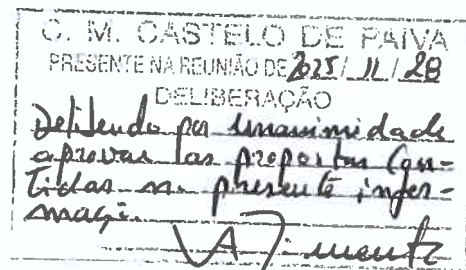 C. M. CASTELO DE PAIVA
PRESENTE NA REUNIÃO DE 2025/11/28
DELIBERAÇÃO
por unanimidade
aprovar as propostas con-
tidas na presente infor-
mação.